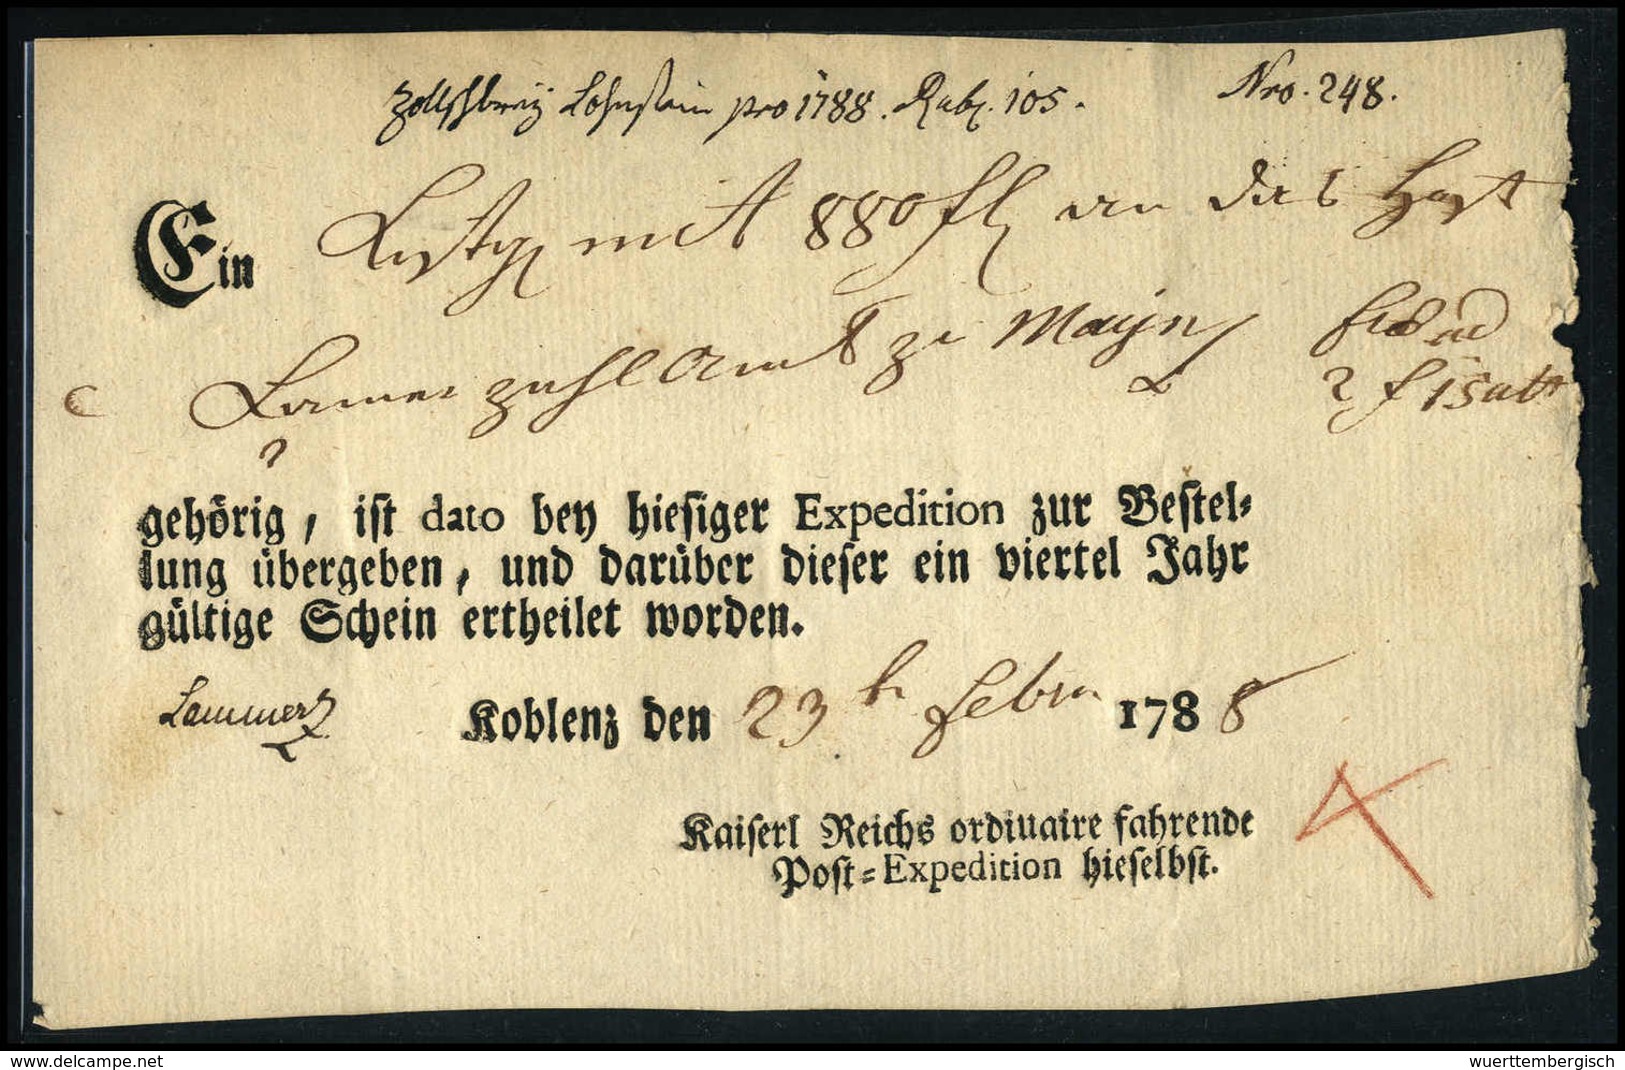 Lohnstein pro 1788. Rubr. 105. Nro. 248.
Ein mit 880 fl an das
zahl Amt zu Maynz
2 f 15
gehörig, ist dato bey hiesiger Expedition zur Bestel-
lung übergeben, und darüber dieser ein viertel Jahr
gültige Schein ertheilet worden.
Lammerz Koblenz den 23 febru 1788
Kaiserl Reichs ordinaire fahrende
Post-Expedition hieselbst.
www.delcampe.net wuerttembergisch